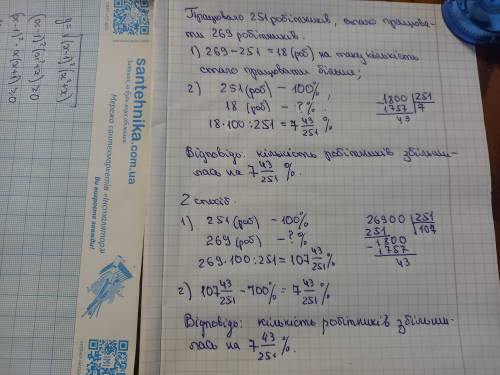 Працювало 251 робітників, стало працюва-
ти 269 робітників.
1) 269 - 251 = 18 (роб) на таку кількість
стало працювати більше;
2) 251 (роб) - 100%
18 (роб) - ? %
18·100:251 = 7 43/251 %
1800 251
1757 7
43
Відповідь: кількість робітників збільши-
лась на 7 43/251 %.
2 спосіб.
1) 251 (роб) - 100%
269 (роб) - ? %
269·100:251 = 107 43/251
26900 251
251 107
1800
1757
43
2) 107 43/251 - 100% = 7 43/251 %
Відповідь: кількість робітників збільши-
лась на 7 43/251 %.
santehnika.com
Мережа сантехмаркетів «Інсталятор»
Ви щиримо завжди!
(x-1)² (x²+x) ≥ 0
(x-1)² · x(x+1) ≥ 0